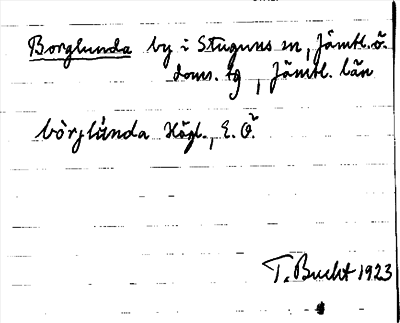 Borglunda by i Stuguns sn, Jämtl. ö.
doms. tg, Jämtl. län
bòrjlùnda Högl., E. Ö.
T. Bucht 1923